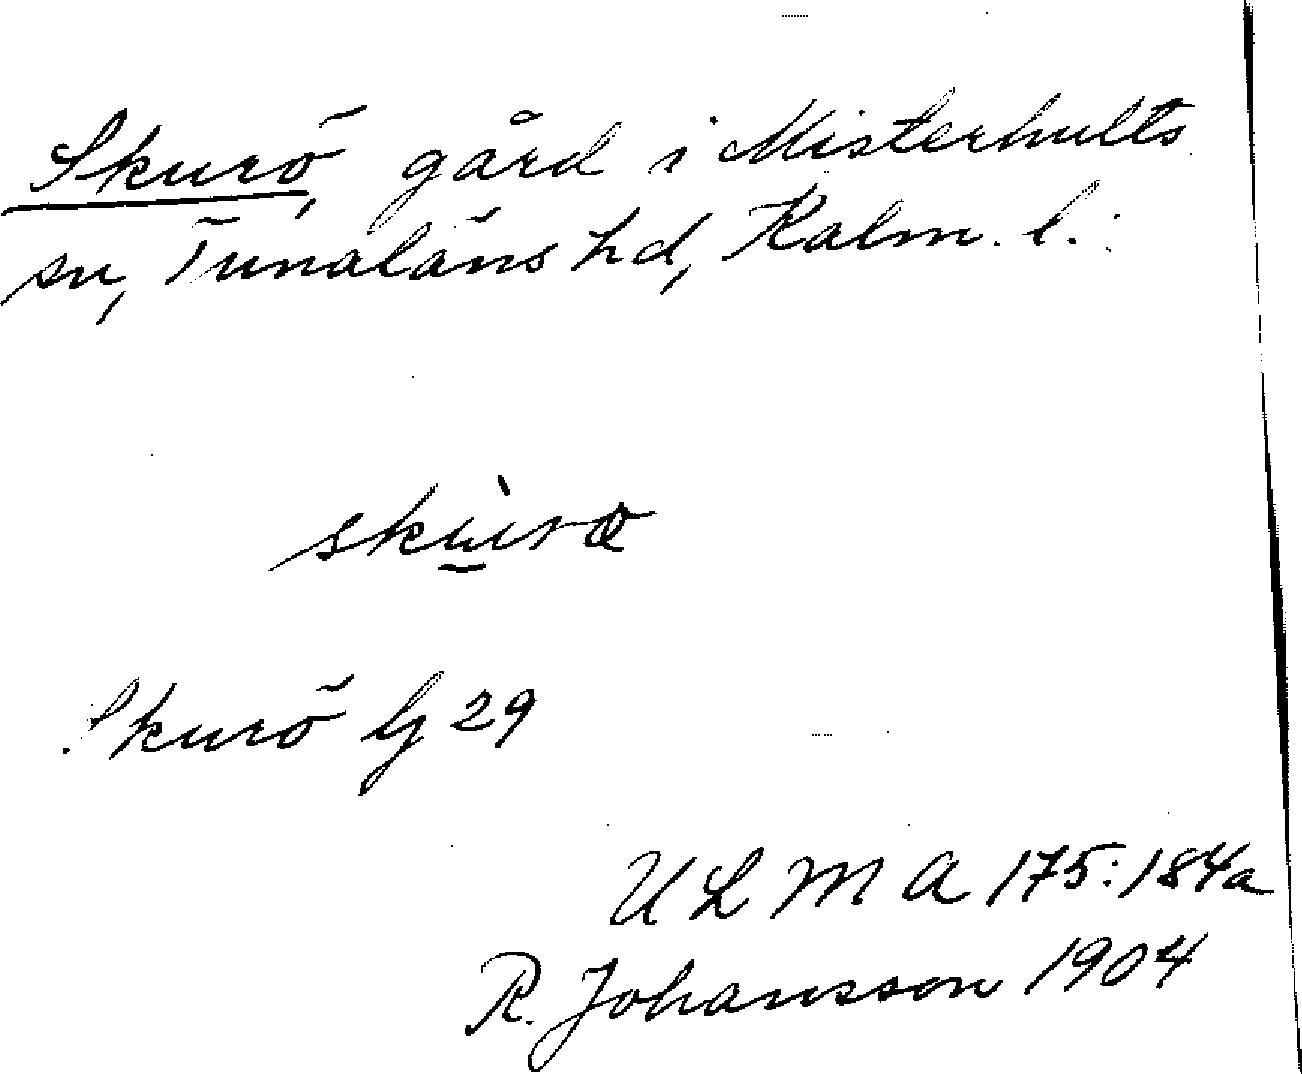 Skurö, gård i Misterhults
sn, Tunaläns hd, Kalm. l.
Skurö G 29
ULMA 175:184a
R. Johansson 1904